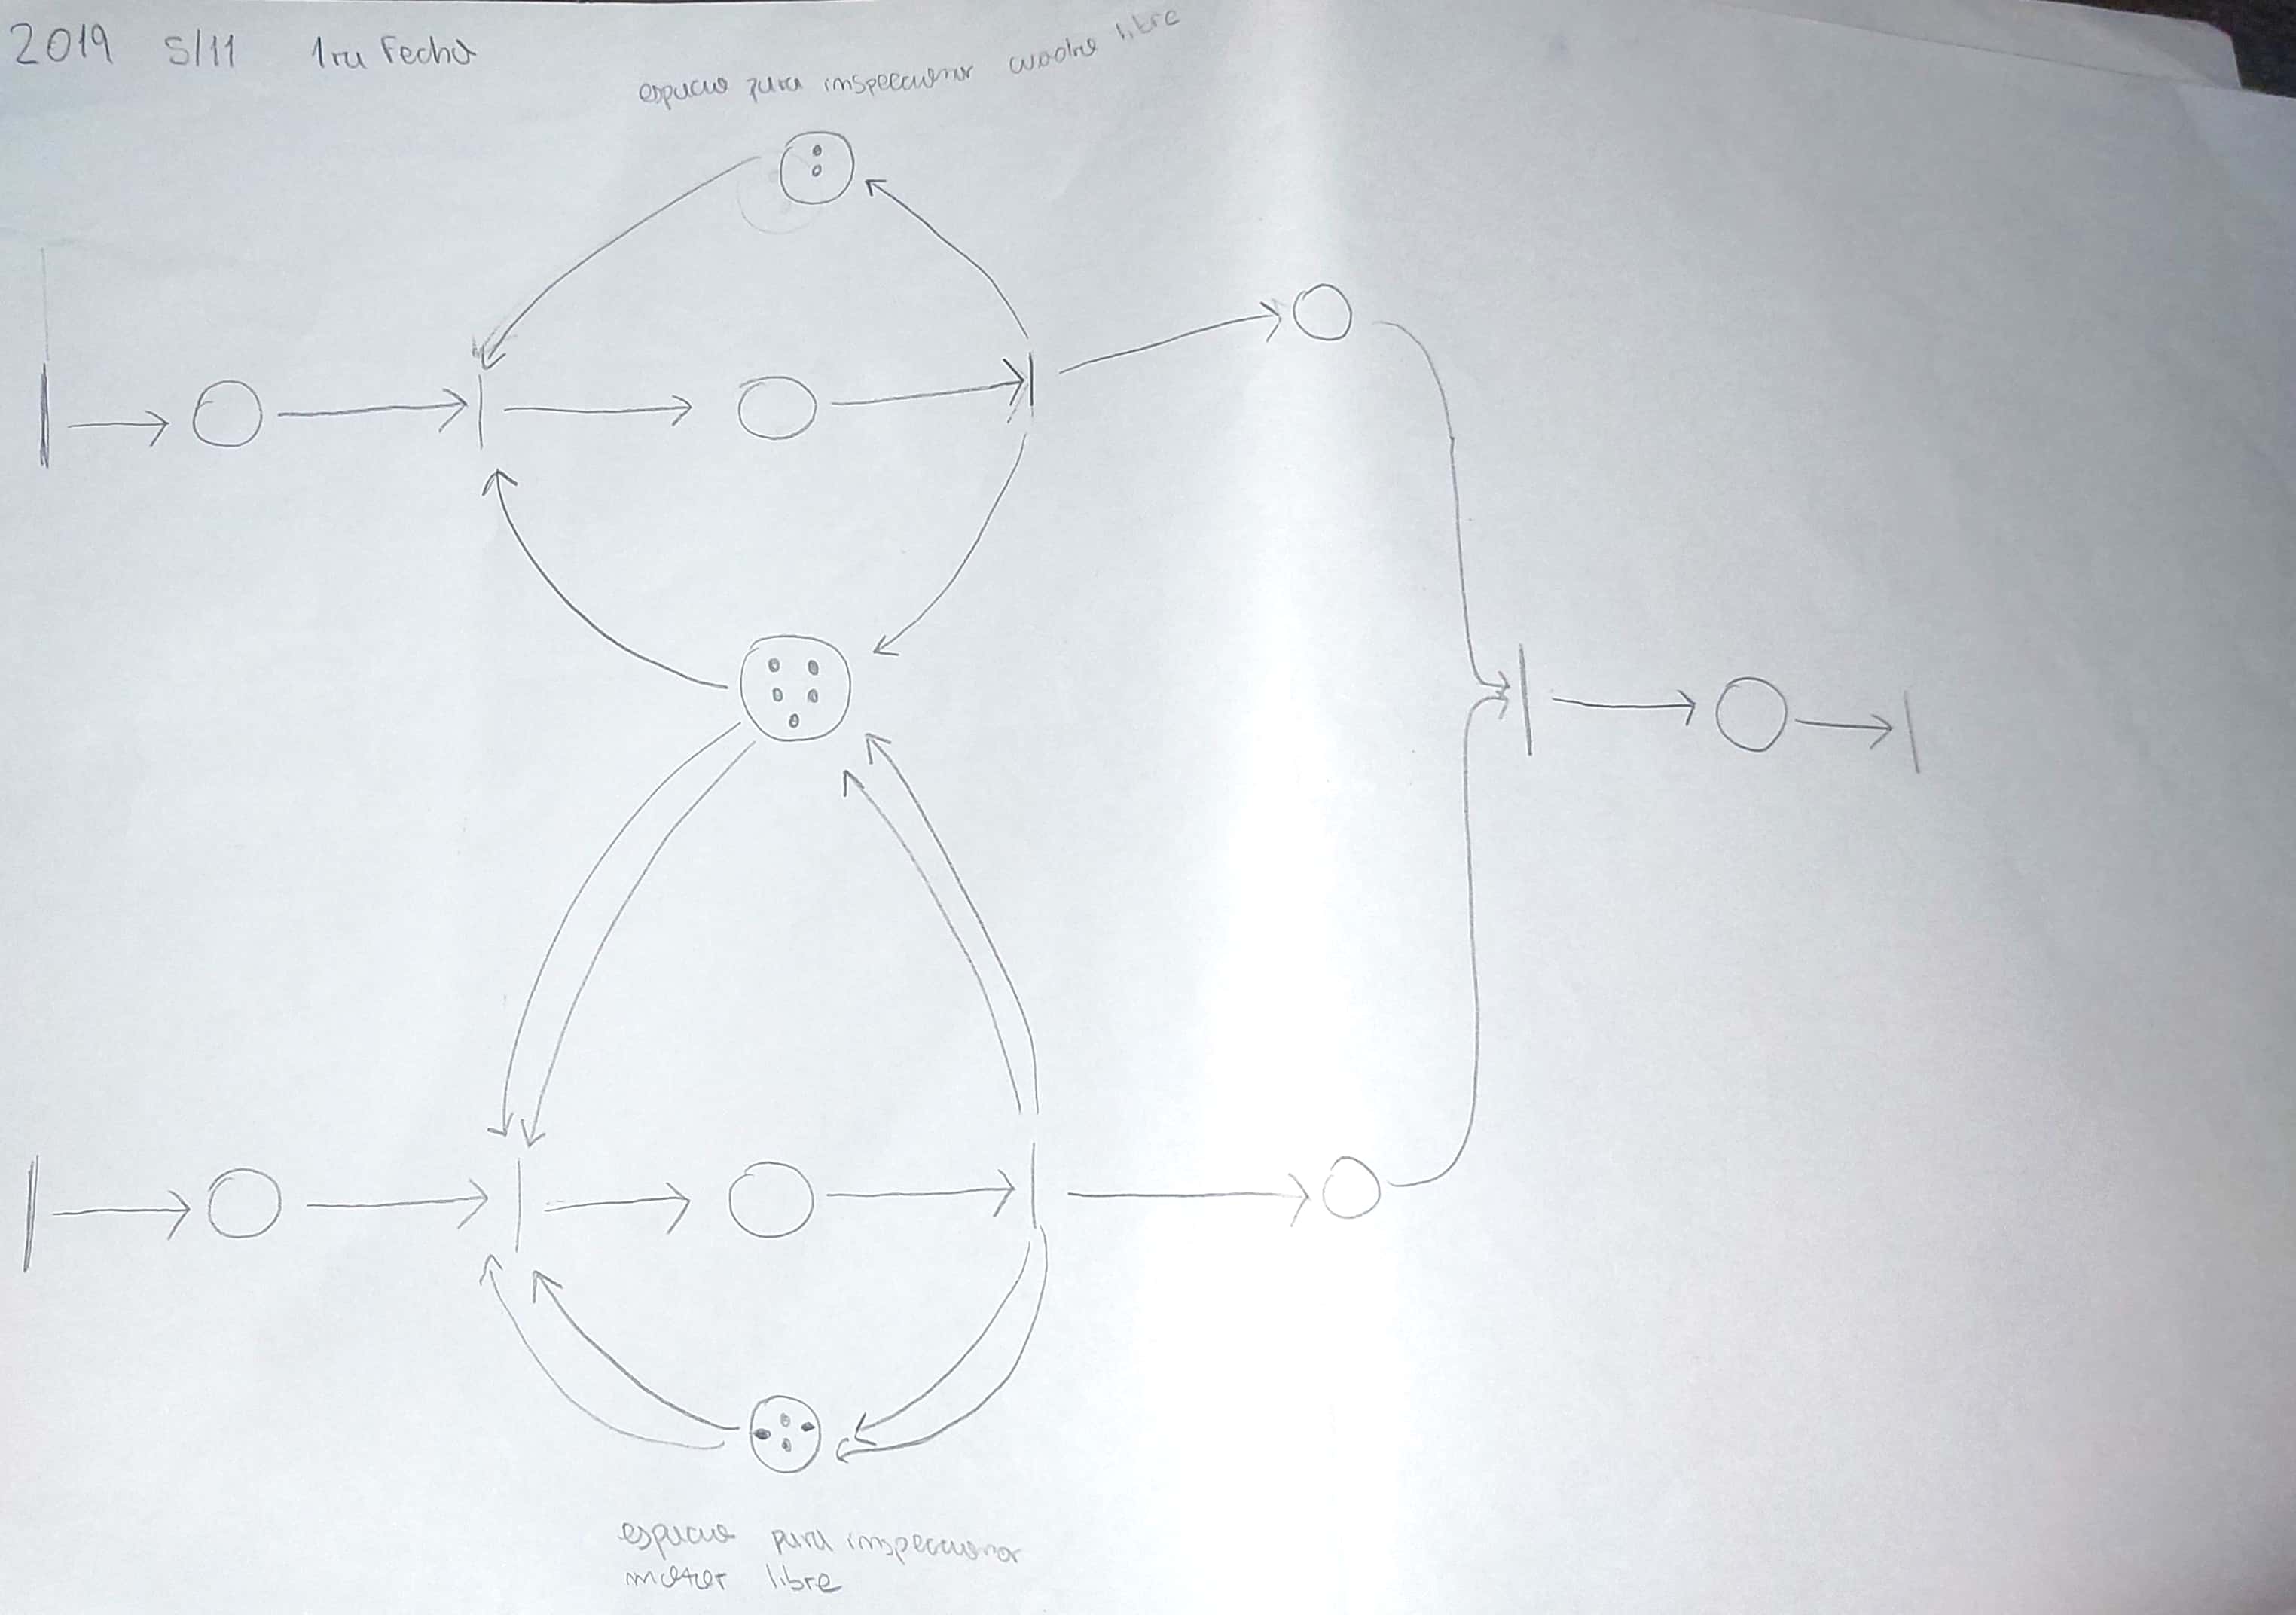 2019 5/11 1ra Fecha
espacio para inspeccionar cuadro libre
espacio para inspeccionar
motor libre